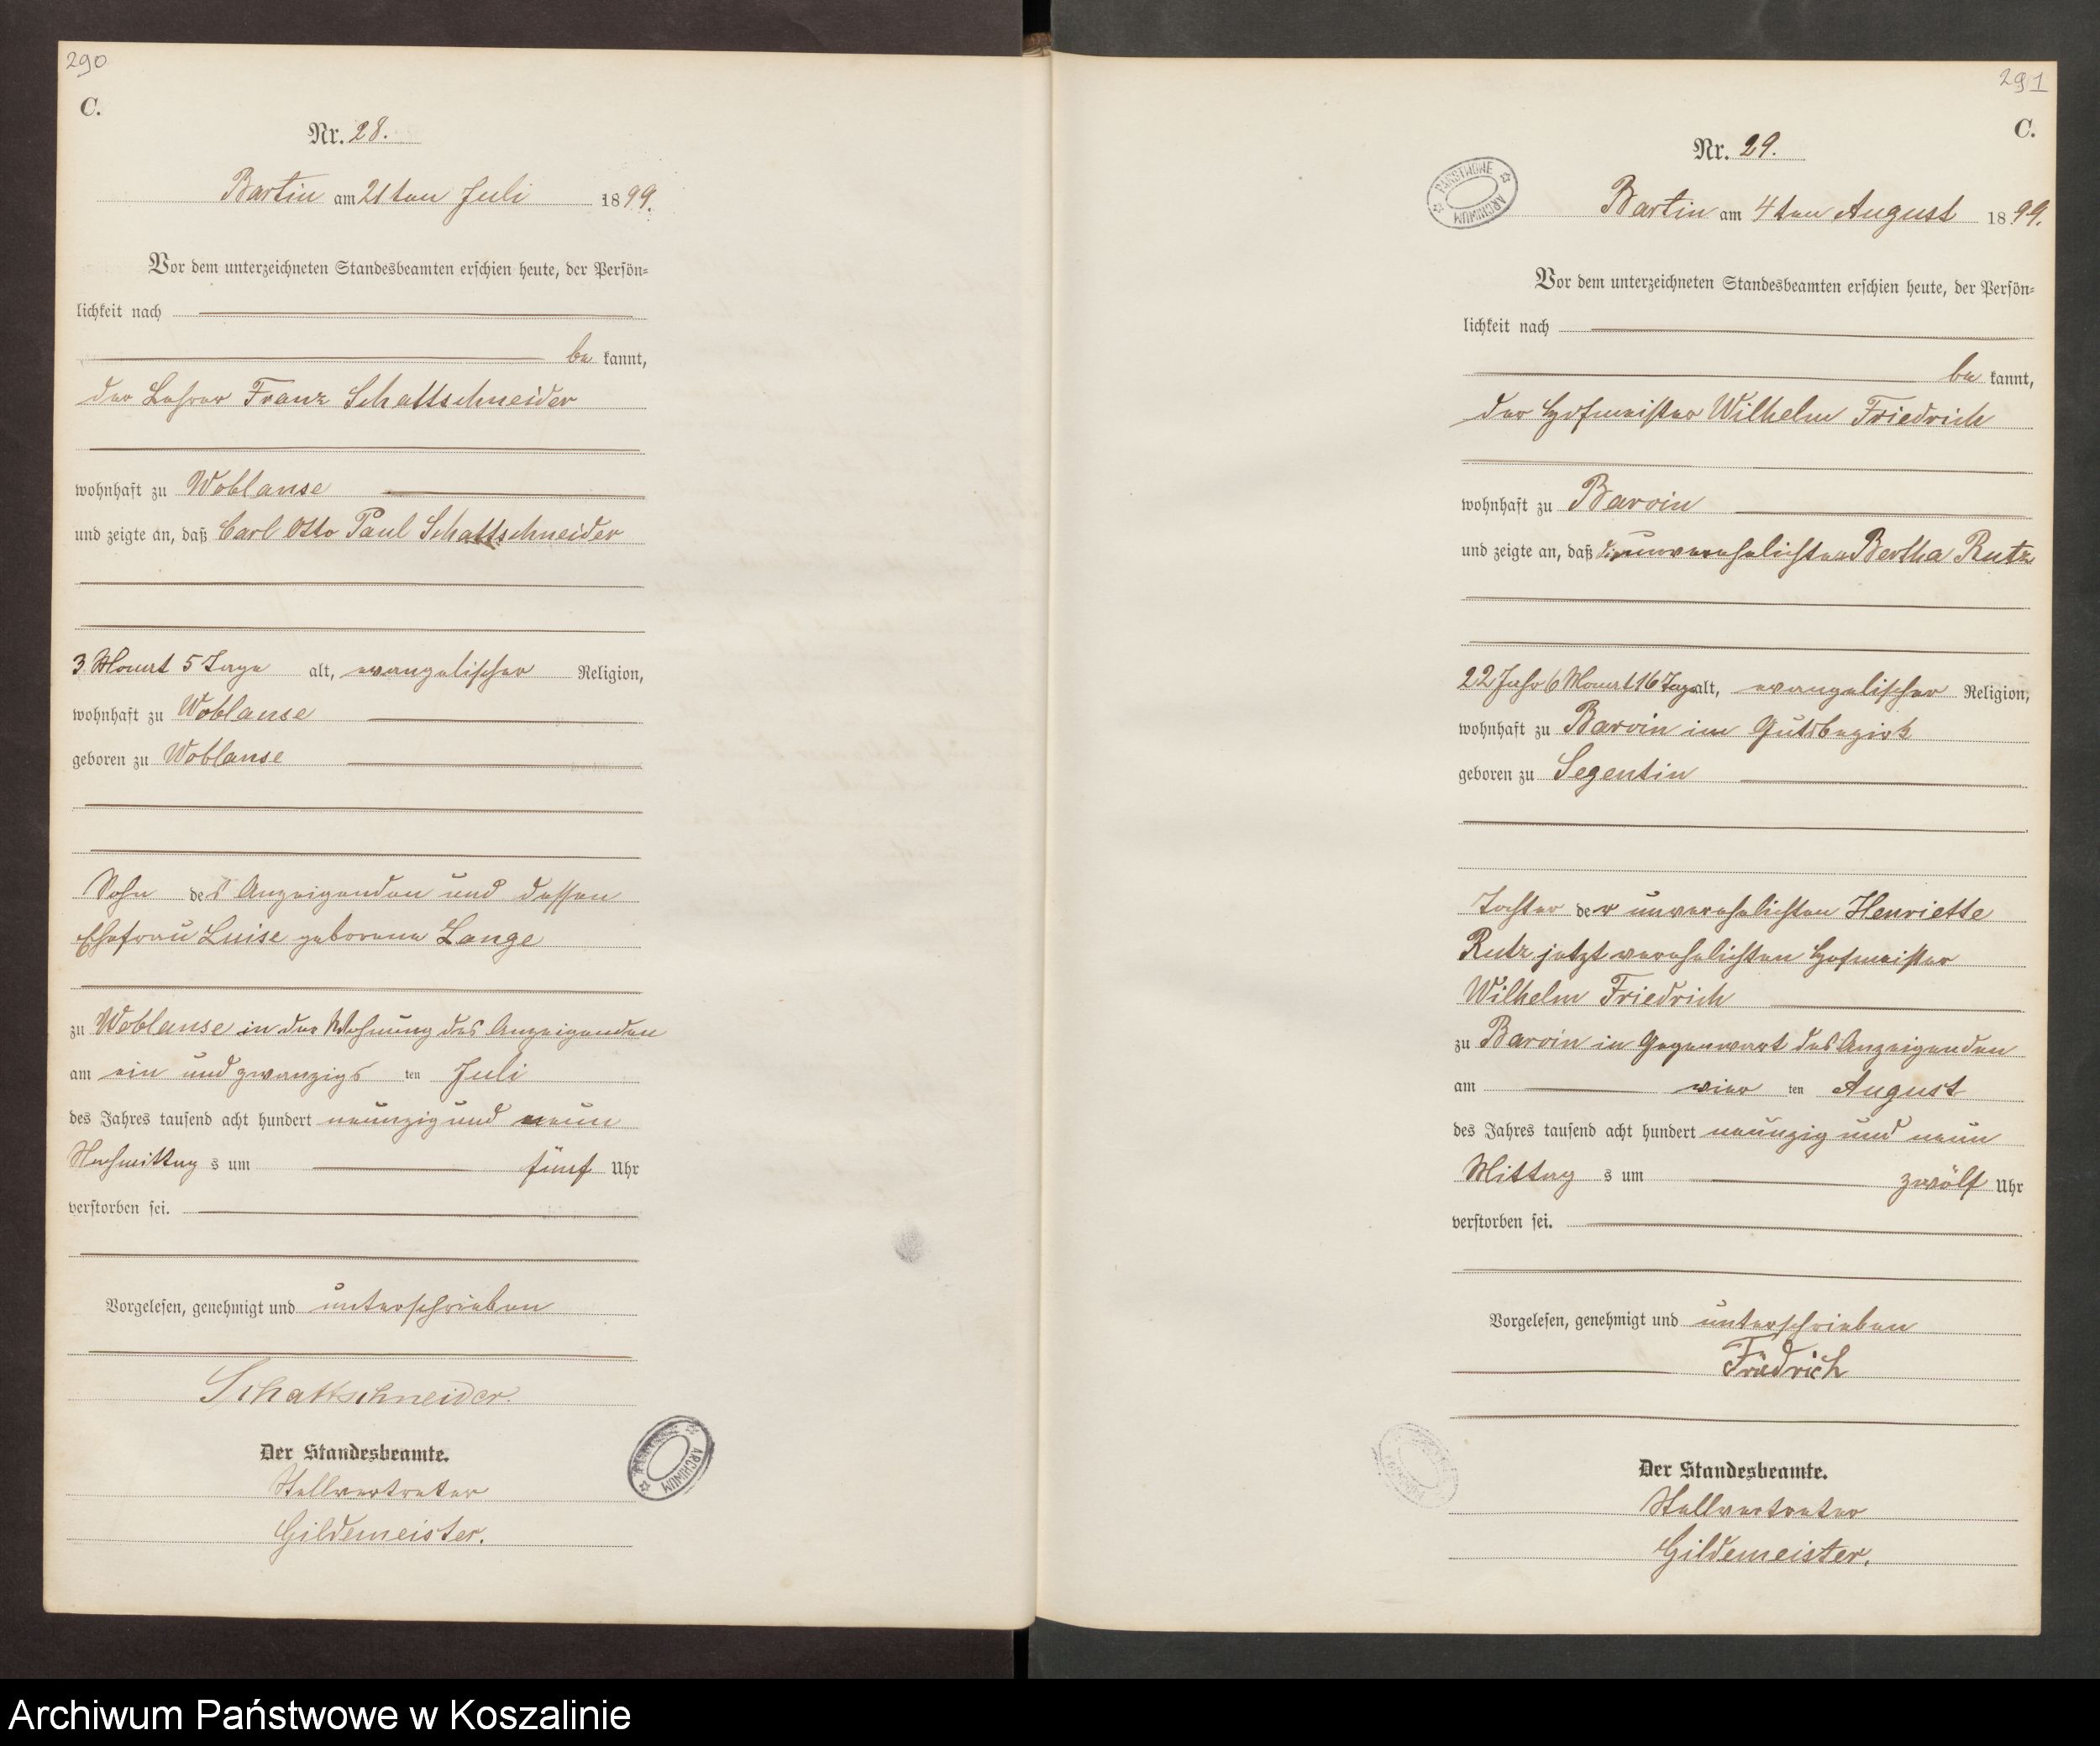 290
C.
Nr. 28.
Bartin am 21ten Juli 1899.
Vor dem unterzeichneten Standesbeamten erschien heute, der Persön-
lichkeit nach
be kannt,
der Lehrer Franz Schattschneider
wohnhaft zu Woblanse
und zeigte an, daß Carl Otto Paul Schattschneider
3 Monat 5 Tage alt, evangelischer Religion,
wohnhaft zu Woblanse
geboren zu Woblanse
Sohn des Anzeigenden und dessen
Ehefrau Luise geborene Lange
zu Woblanse in der Wohnung des Anzeigenden
am ein und zwanzigs ten Juli
des Jahres tausend acht hundert neunzig und neun
Nachmittag s um fünf Uhr
verstorben sei.
Vorgelesen, genehmigt und unterschrieben
Schattschneider.
Der Standesbeamte.
Stellvertreter
Gildemeister.
ARCHIWUM
291
C.
Nr. 29.
PAŃSTWOWE ARCHIWUM
Bartin am 4ten August 1899.
Vor dem unterzeichneten Standesbeamten erschien heute, der Persön-
lichkeit nach
be kannt,
der Hofmeister Wilhelm Friedrich
wohnhaft zu Barvin
und zeigte an, daß die unverehelichte Bertha Rutz
22 Jahr 6 Monat 16 Tage alt, evangelischer Religion,
wohnhaft zu Barvin im Gutsbezirk
geboren zu Segentin
Tochter der unverehelichten Henriette
Rutz jetzt verehelichten Hofmeister
Wilhelm Friedrich
zu Barvin in Gegenwart des Anzeigenden
am vier ten August
des Jahres tausend acht hundert neunzig und neun
Mittag s um zwölf Uhr
verstorben sei.
Vorgelesen, genehmigt und unterschrieben
Friedrich
Der Standesbeamte.
Stellvertreter
Gildemeister.
Archiwum Państwowe w Koszalinie